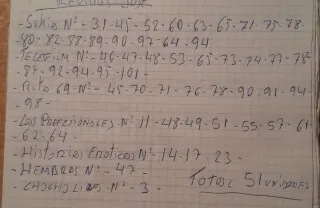 - Sukia Nº - 31 - 45 - 52 - 60 - 63 - 65 - 71 - 75 - 78 -
- 80 - 82 - 88 - 89 - 90 - 97 - 64 - 94
Nº - 46 - 47 - 48 - 53 - 65 - 73 - 74 - 77 - 78 -
- 87 - 92 - 94 - 95 - 101 -
69 Nº - 45 - 70 - 71 - 76 - 78 - 90 - 91 - 94
- 98 -
- Los Profesionales Nº 11 - 48 - 49 - 51 - 55 - 57 - 61
- 62 - 64 -
- Historias Eroticas Nº - 14 - 17 - 23 -
- Hembras Nº - 47 -
- Nº - 3 - Total 51 unidades